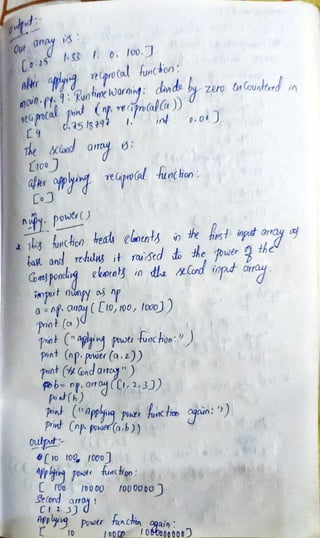 output:-
Our array is:
[0.25 1.33 1. 0. 100.]
After applying reciprocal function:
main.py:9: RuntimeWarning: divide by zero encountered in
reciprocal print (np.reciprocal(a))
[4 0.7518797 1. inf 0.01]
The second array is:
[100]
after applying reciprocal function:
[0]
numpy.power()
This function treats elements in the first input array as
base and returns it raised to the power of the
corresponding elements in the second input array.
import numpy as np
a = np.array([10,100,1000])
print(a)
print("applying power function:")
print(np.power(a,2))
print("second array")
b = np.array([1,2,3])
print(b)
print("applying power function again:")
print(np.power(a,b))
output:-
[10 100 1000]
Applying power function:
[100 10000 1000000]
Second array:
[1 2 3]
Applying power function again:
[ 10 10000 1000000000]